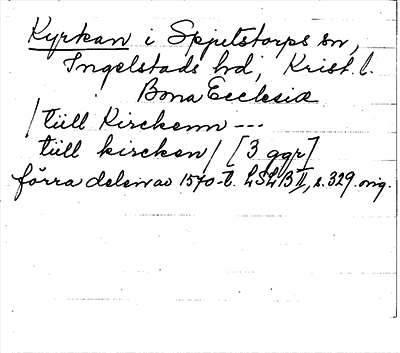 Kyrkan i Spjutstorps sn,
Ingelstads hd, Krist. l.
Bona Ecclesiæ
/tüll Kirckenn ---
tüll kircken/ [3 ggr]
förra delen av 1570-t. LSLB II, s. 329. orig.